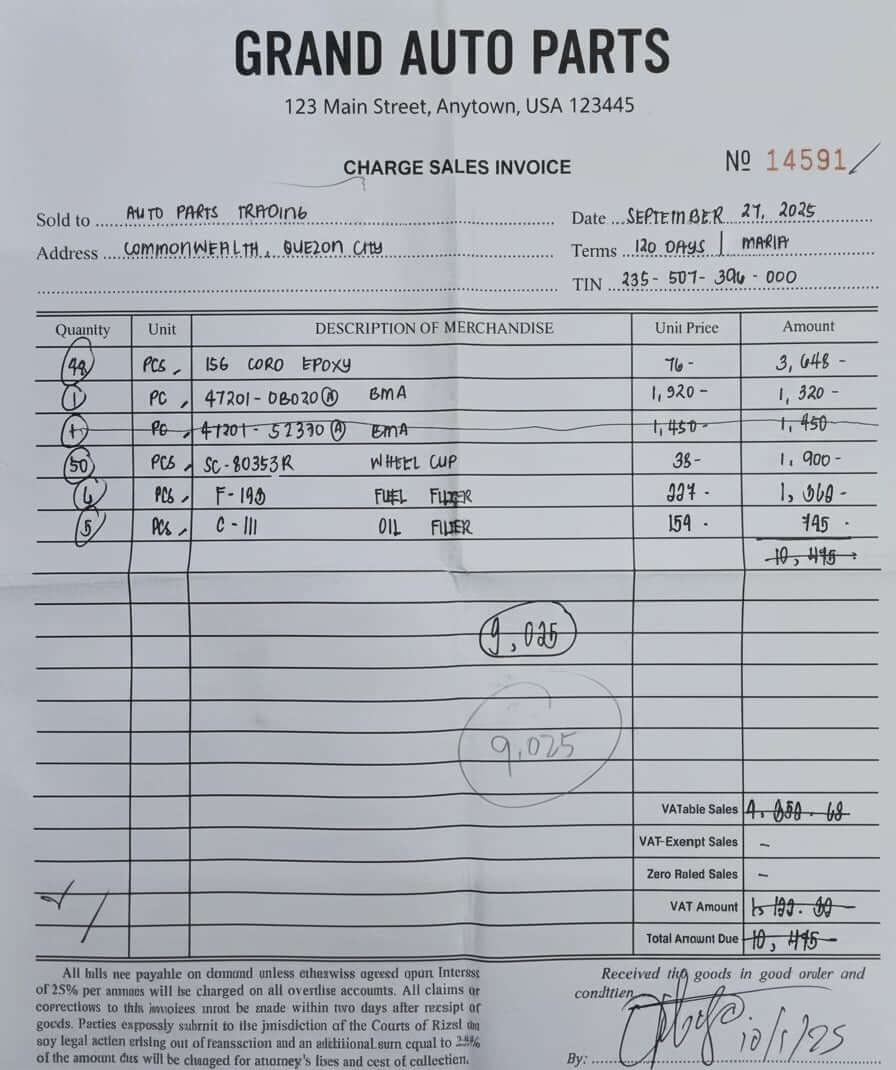 GRAND AUTO PARTS
123 Main Street, Anytown, USA 123445
CHARGE SALES INVOICE
Nº 14591
Sold to AUTO PARTS TRADING
Date SEPTEMBER 27, 2025
Address COMMONWEALTH, QUEZON CITY
Terms 120 DAYS | MARIA
TIN 235-507-396-000
Quantity Unit DESCRIPTION OF MERCHANDISE Unit Price Amount
PCS, 156 CORO EPOXY 76- 3,648-
1 PC, 47201-0B020 A BMA 1,920- 1,320-
PC, 47201-52330 A BMA 1,450- 1,450
50 PCS, SC-80353R WHEEL CUP 38- 1,900-
6 PCS, F-193 FUEL FILTER 227-
5 PCS, C-111 OIL FILTER 159- 795-
10,475
9,025
9,025
VATable Sales
VAT-Exempt Sales -
Zero Raled Sales -
VAT Amount
Total Amount Due 10,475-
All bills nee payable on domand unless etheiwiss agresd opan Intersst
of 25% per annuees will be charged on all overdlise accounts. All claims or
corrections to this invoices unrot be anade within two days after recsipt of
goeds. Parties expossly subrnit to ilse jmisdiction of the Courts of Rizsl
soy legal action erising out of reanssction and an additiional.surn equal to
of the amount dus will be chauged for attorney's lises and cest of callection.
Received thp goods in good orler and
condttien
By: 10/1/25